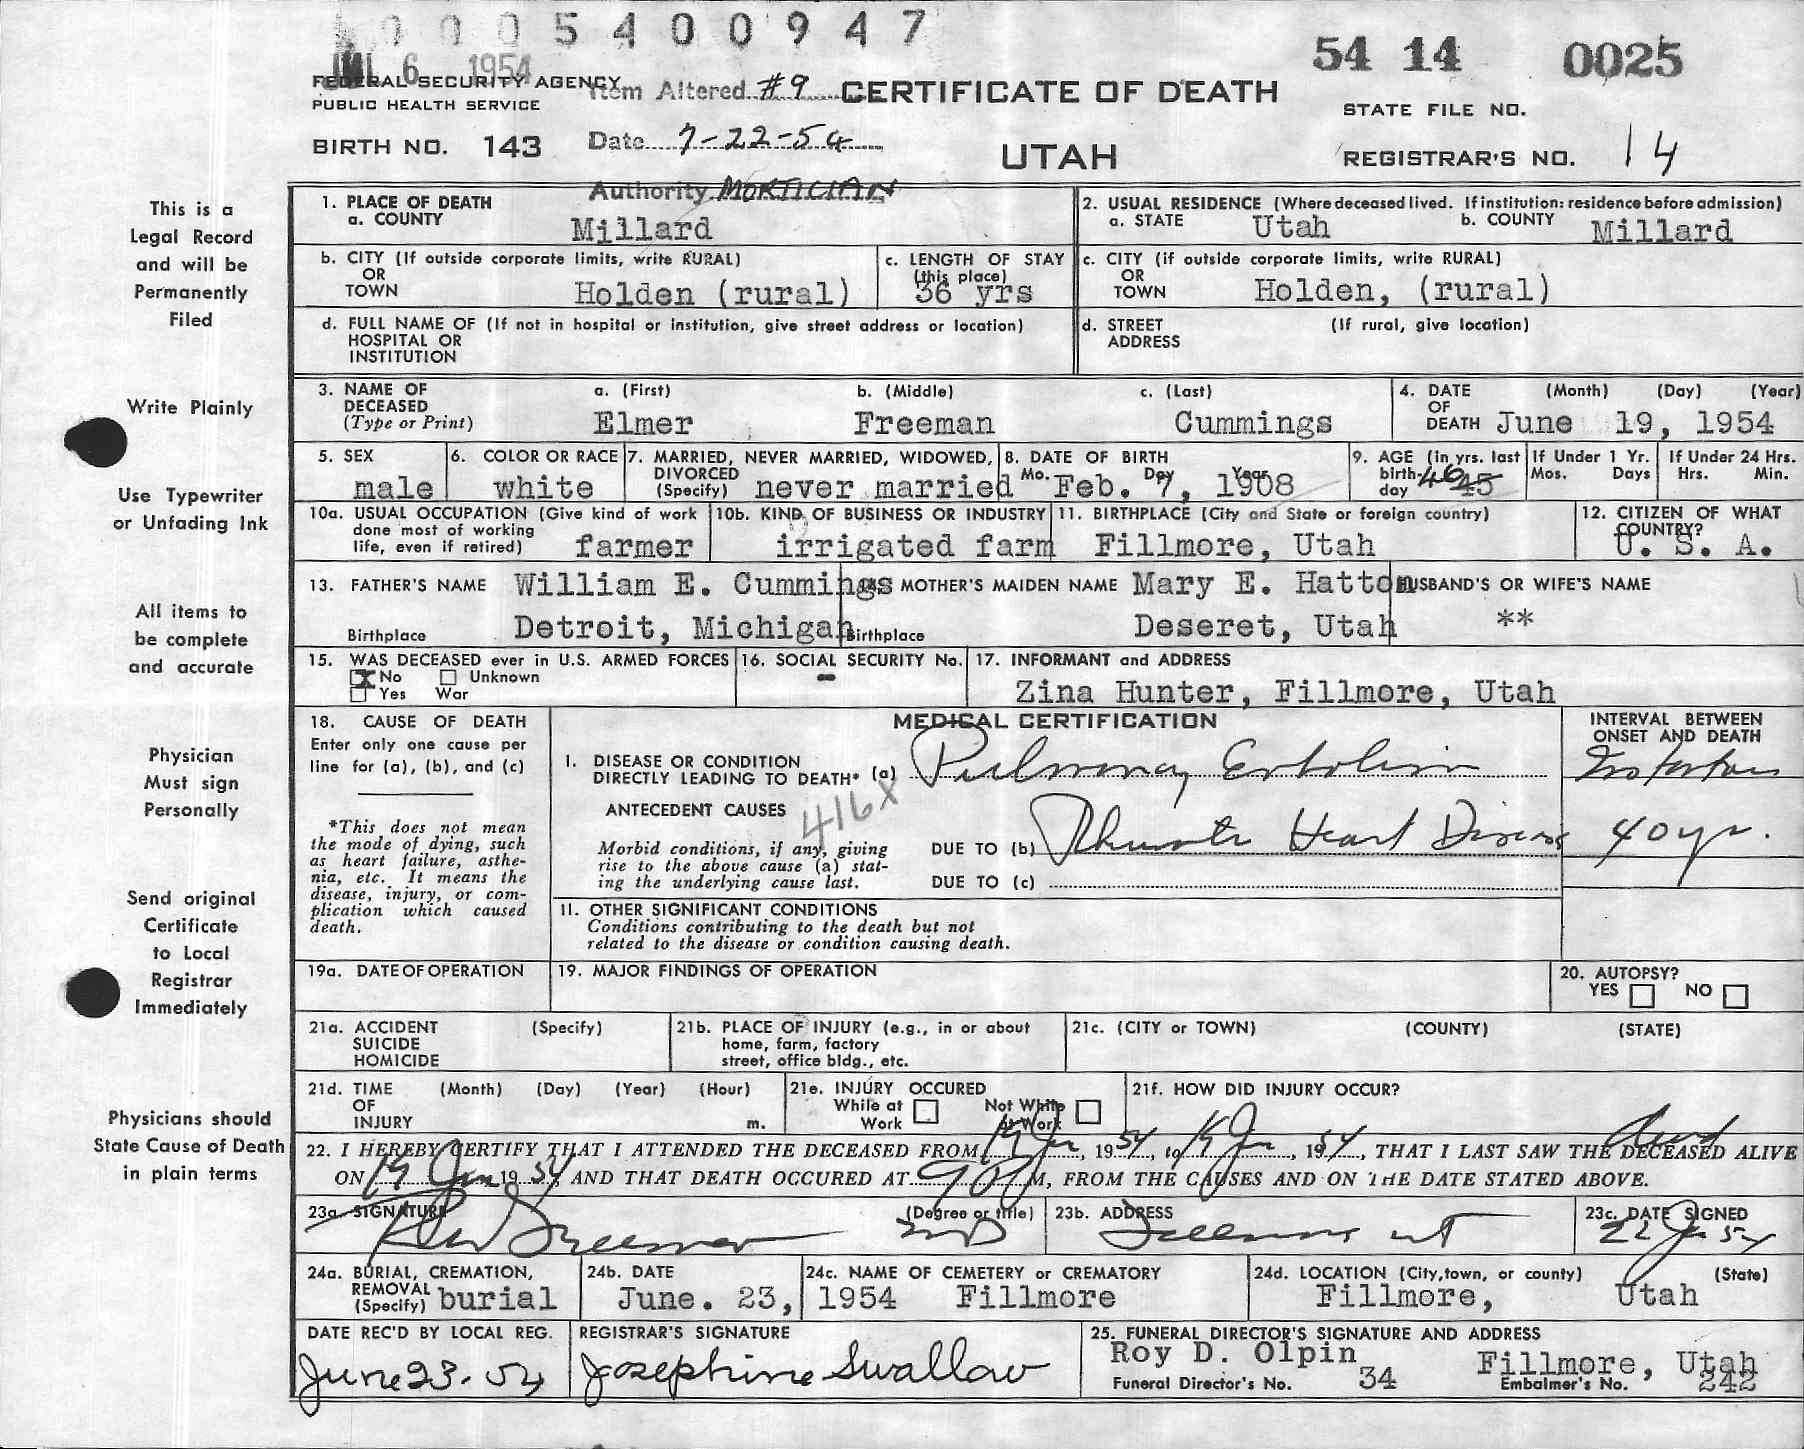 0005400947
6 1954
54 14 0025
FEDERAL SECURITY AGENCY
PUBLIC HEALTH SERVICE
Item Altered #9
CERTIFICATE OF DEATH
STATE FILE NO.
BIRTH NO. 143
Date 7-22-54
UTAH
REGISTRAR'S NO. 14
Authority MORTICIAN
This is a
Legal Record
and will be
Permanently
Filed
Write Plainly
Use Typewriter
or Unfading Ink
All items to
be complete
and accurate
Physician
Must sign
Personally
Send original
Certificate
to Local
Registrar
Immediately
Physicians should
State Cause of Death
in plain terms
1. PLACE OF DEATH
a. COUNTY Millard
2. USUAL RESIDENCE (Where deceased lived. If institution: residence before admission)
a. STATE Utah b. COUNTY Millard
b. CITY (If outside corporate limits, write RURAL)
OR
TOWN Holden (rural)
c. LENGTH OF STAY
(this place)
36 yrs
c. CITY (if outside corporate limits, write RURAL)
OR
TOWN Holden, (rural)
d. FULL NAME OF (If not in hospital or institution, give street address or location)
HOSPITAL OR
INSTITUTION
d. STREET (If rural, give location)
ADDRESS
3. NAME OF
DECEASED
(Type or Print)
a. (First) b. (Middle) c. (Last)
Elmer Freeman Cummings
4. DATE (Month) (Day) (Year)
OF
DEATH June 19, 1954
5. SEX
male
6. COLOR OR RACE
white
7. MARRIED, NEVER MARRIED, WIDOWED,
DIVORCED
(Specify) never married
8. DATE OF BIRTH
Mo. Day Year
Feb. 7, 1908
9. AGE (in yrs. last
birth-
day 46 45
If Under 1 Yr.
Mos. Days
If Under 24 Hrs.
Hrs. Min.
10a. USUAL OCCUPATION (Give kind of work
done most of working
life, even if retired) farmer
10b. KIND OF BUSINESS OR INDUSTRY
irrigated farm
11. BIRTHPLACE (City and State or foreign country)
Fillmore, Utah
12. CITIZEN OF WHAT
COUNTRY?
U. S. A.
13. FATHER'S NAME William E. Cummings
Birthplace Detroit, Michigan
MOTHER'S MAIDEN NAME Mary E. Hatton
Birthplace Deseret, Utah
HUSBAND'S OR WIFE'S NAME
**
15. WAS DECEASED ever in U.S. ARMED FORCES
X No Unknown
Yes War
16. SOCIAL SECURITY No.
-
17. INFORMANT and ADDRESS
Zina Hunter, Fillmore, Utah
18. CAUSE OF DEATH
Enter only one cause per
line for (a), (b), and (c)
*This does not mean
the mode of dying, such
as heart failure, asthe-
nia, etc. It means the
disease, injury, or com-
plication which caused
death.
MEDICAL CERTIFICATION
INTERVAL BETWEEN
ONSET AND DEATH
I. DISEASE OR CONDITION
DIRECTLY LEADING TO DEATH* (a) Pulmonary Embolism
ANTECEDENT CAUSES 416X
Morbid conditions, if any, giving
rise to the above cause (a) stat-
ing the underlying cause last.
DUE TO (b) Rheumatic Heart Disease 40 yr.
DUE TO (c)
II. OTHER SIGNIFICANT CONDITIONS
Conditions contributing to the death but not
related to the disease or condition causing death.
19a. DATE OF OPERATION
19. MAJOR FINDINGS OF OPERATION
20. AUTOPSY?
YES NO
21a. ACCIDENT (Specify)
SUICIDE
HOMICIDE
21b. PLACE OF INJURY (e.g., in or about
home, farm, factory
street, office bldg., etc.
21c. (CITY or TOWN) (COUNTY) (STATE)
21d. TIME (Month) (Day) (Year) (Hour)
OF
INJURY m.
21e. INJURY OCCURED
While at Work
Not While at Work
21f. HOW DID INJURY OCCUR?
22. I HEREBY CERTIFY THAT I ATTENDED THE DECEASED FROM 19 Jun, 1954, to 19 Jun, 1954, THAT I LAST SAW THE DECEASED ALIVE
ON 19 Jun 1954, AND THAT DEATH OCCURED AT 9 P M, FROM THE CAUSES AND ON THE DATE STATED ABOVE.
23a. SIGNATURE (Degree or title)
MD
23b. ADDRESS
Fillmore Ut
23c. DATE SIGNED
22 Jun 54
24a. BURIAL, CREMATION,
REMOVAL
(Specify) burial
24b. DATE
June. 23, 1954
24c. NAME OF CEMETERY or CREMATORY
Fillmore
24d. LOCATION (City, town, or county) (State)
Fillmore, Utah
DATE REC'D BY LOCAL REG.
June 23-54
REGISTRAR'S SIGNATURE
Josephine Swallow
25. FUNERAL DIRECTOR'S SIGNATURE AND ADDRESS
Roy D. Olpin Fillmore, Utah
Funeral Director's No. 34 Embalmer's No. 242